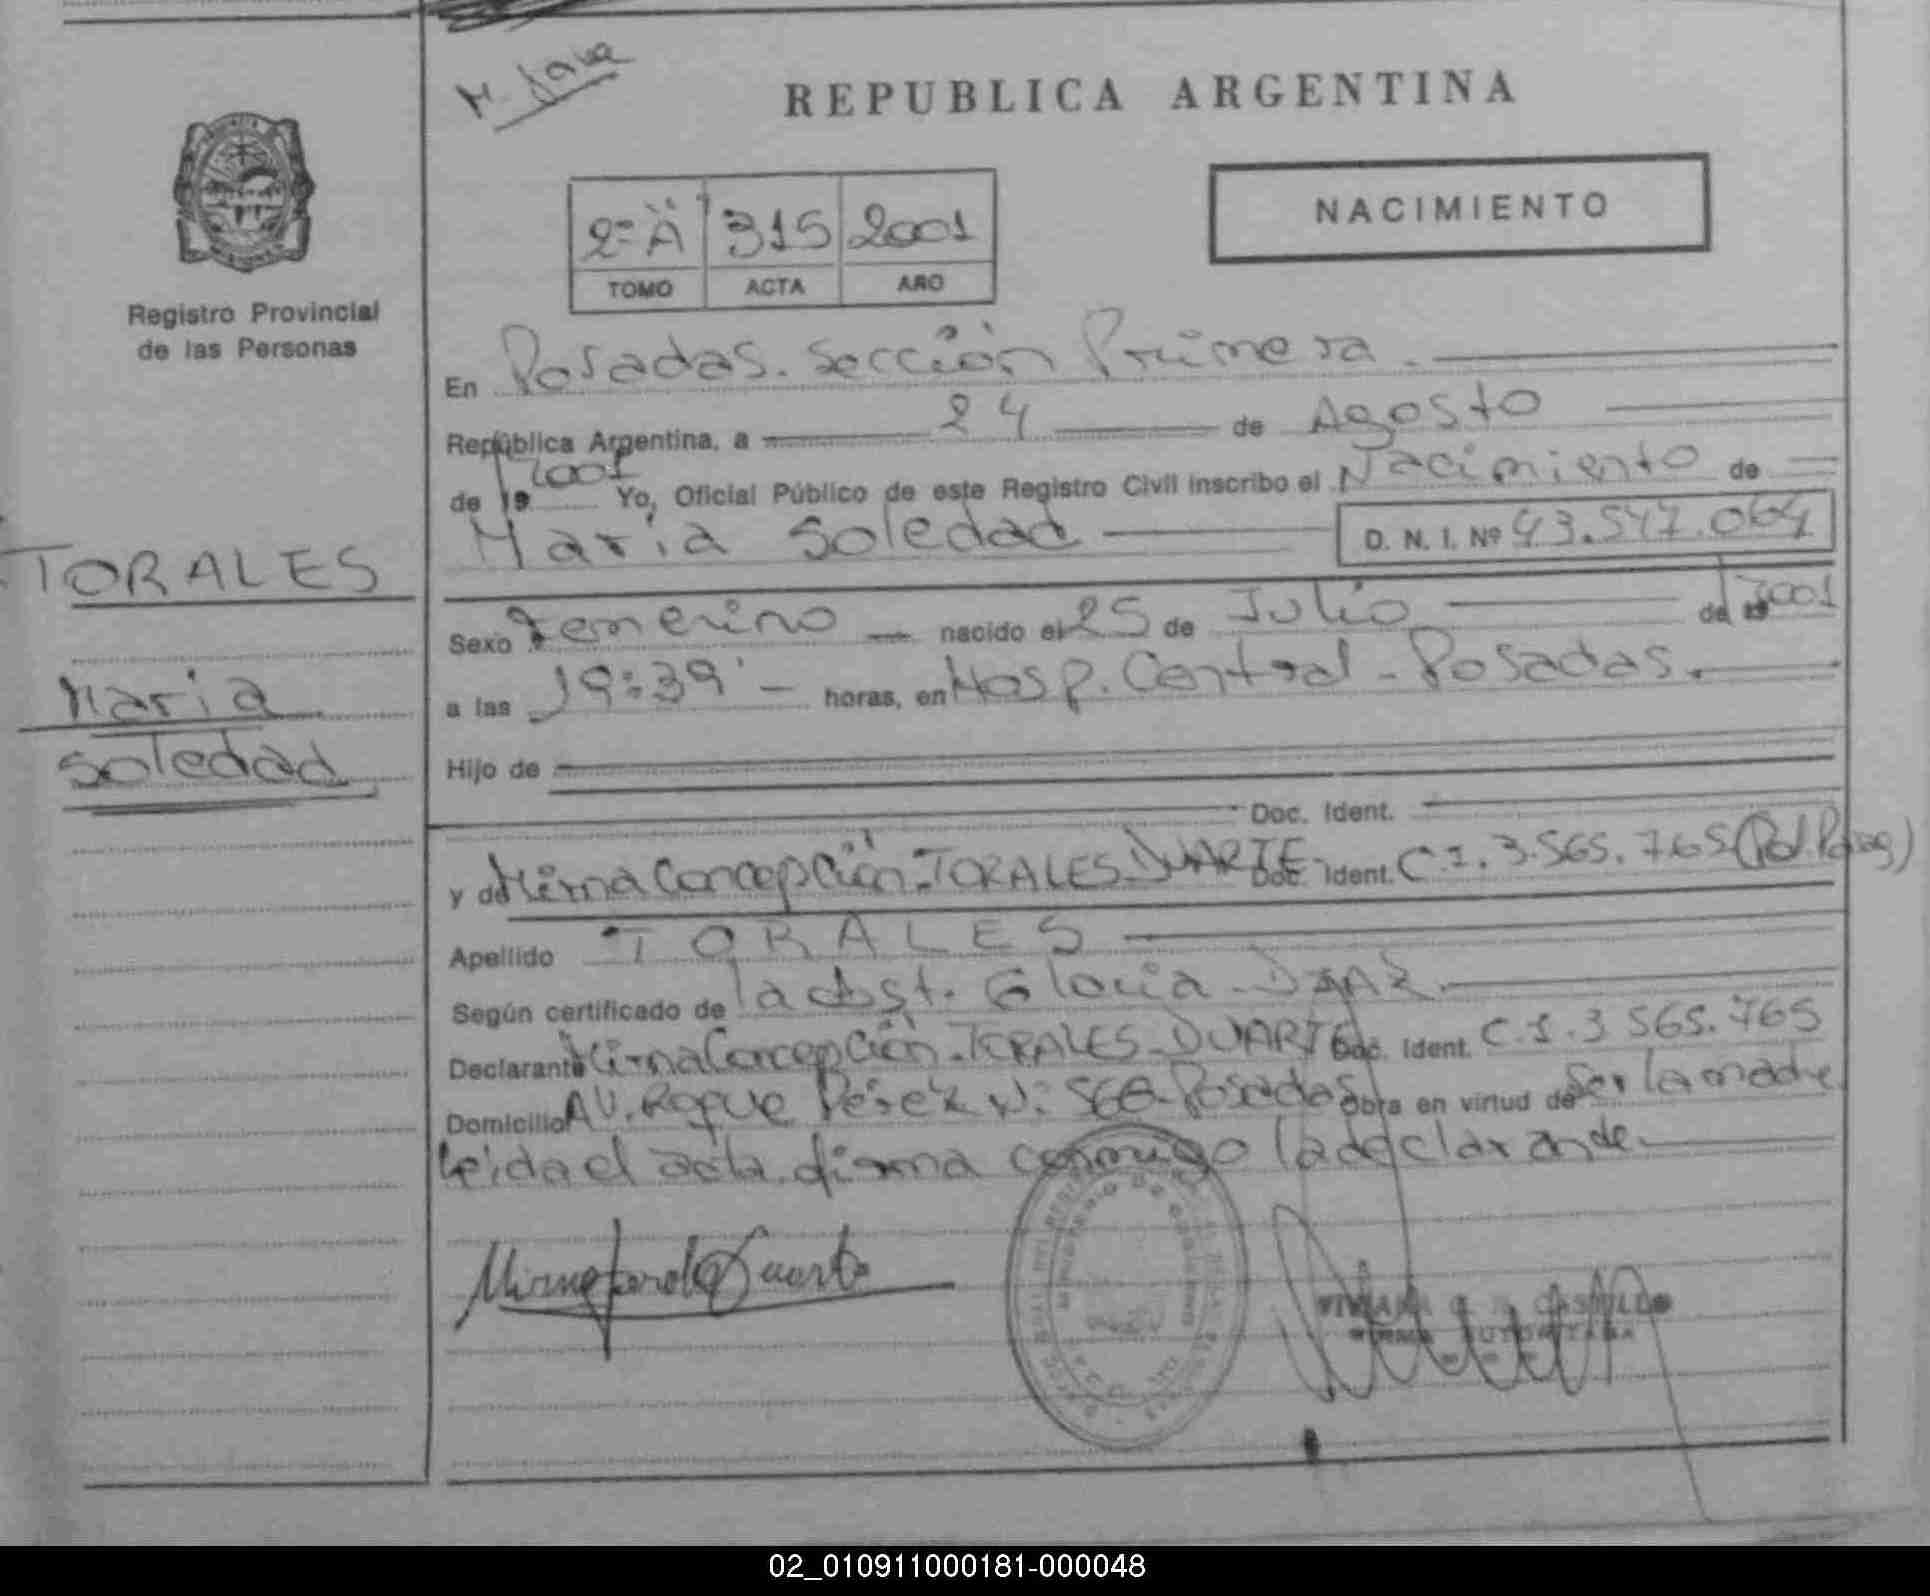 REPUBLICA ARGENTINA
NACIMIENTO
2º "A" 315 2001
TOMO ACTA AÑO
Registro Provincial
de las Personas
TORALES
Maria
Soledad
En Posadas. Sección Primera.
República Argentina, a 24 de Agosto
de 19 2001 Yo, Oficial Público de este Registro Civil inscribo el Nacimiento de
Maria Soledad D. N. I. Nº 43.547.064
Sexo Femenino nacido el 25 de Julio de 19 2001
a las 19:39' horas, en Hosp. Central - Posadas.
Hijo de
Doc. Ident.
y de Mirna Concepción TORALES DUARTE Doc. Ident. C.I. 3.565.765 (Pol.
Apellido TORALES
Según certificado de la obst. Gloria DIAZ.
Declarante Mirna Concepción TORALES DUARTE Doc. Ident. C.I. 3.565.765
Domicilio AV. Roque Pérez Nº 566 Posadas Obra en virtud de Ser la madre
Leida el acta firma conmigo la declarante.
02_010911000181-000048